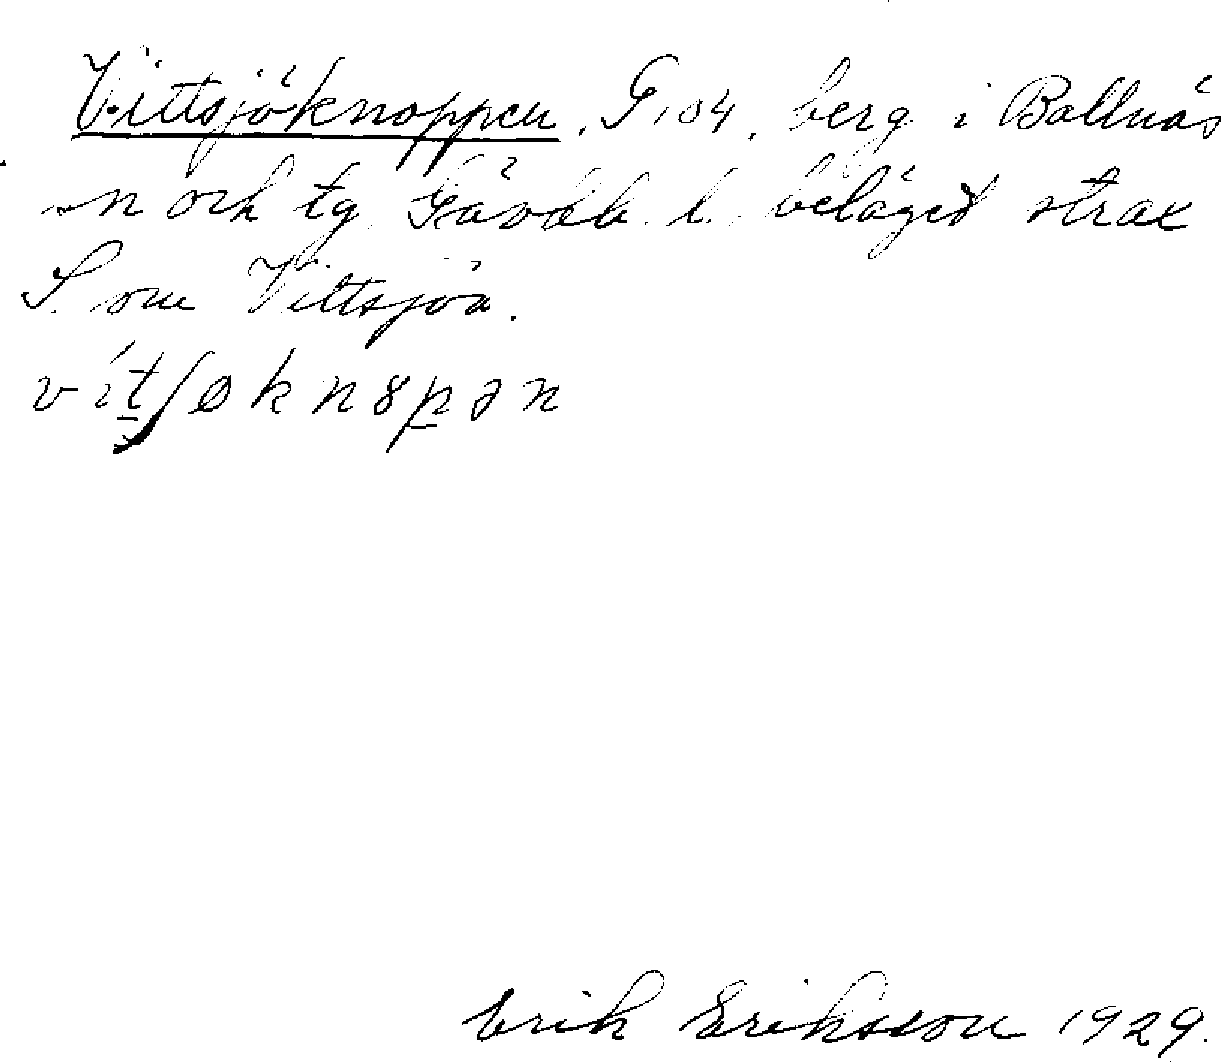 Vittsjöknoppen, G, 104, berg i Bollnäs
sn och tg Gävleb. l. beläget strax
S. om Vittsjön.
vítʃøknɔpən
Erik Eriksson 1929.